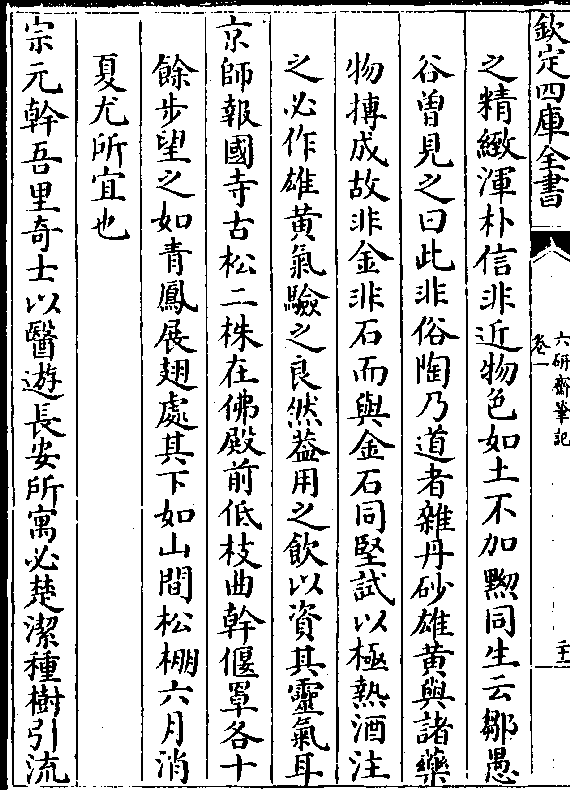 欽定四庫全書
六研齋筆記
卷一
二十二
之精緻渾朴信非近物色如土不加㸃同生云鄒愚
谷曾見之曰此非俗陶乃道者雜丹砂雄黃與諸藥
物摶成故非金非石而與金石同堅試以極熱酒注
之必作雄黃氣驗之良然葢用之飲以資其靈氣耳
京師報國寺古松二株在佛殿前低枝曲幹偃罩各十
餘步望之如青鳳展翅處其下如山間松棚六月消
夏尤所宜也
宗元幹吾里奇士以醫遊長安所寓必楚潔種樹引流